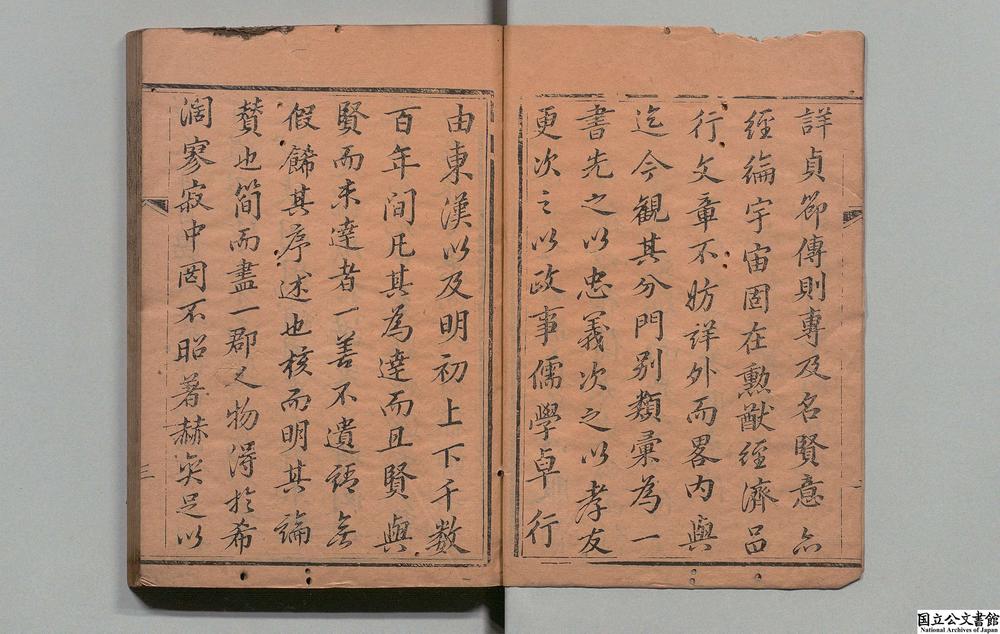 詳貞節傳則專及名賢意亦
經綸宇宙固在勲猷經濟品
行文章不妨詳外而畧内與
迄今觀其分門别類彙為一
書先之以忠義次之以孝友
更次之以政事儒學卓行
由東漢以及明初上下千數
百年間凡其為達而且賢與
賢而未達者一善不遺語無
假餙其序述也核而明其論
賛也簡而盡一郡之物得於希
濶寥寂中罔不昭著赫奕足以
三
国立公文書館
National Archives of Japan